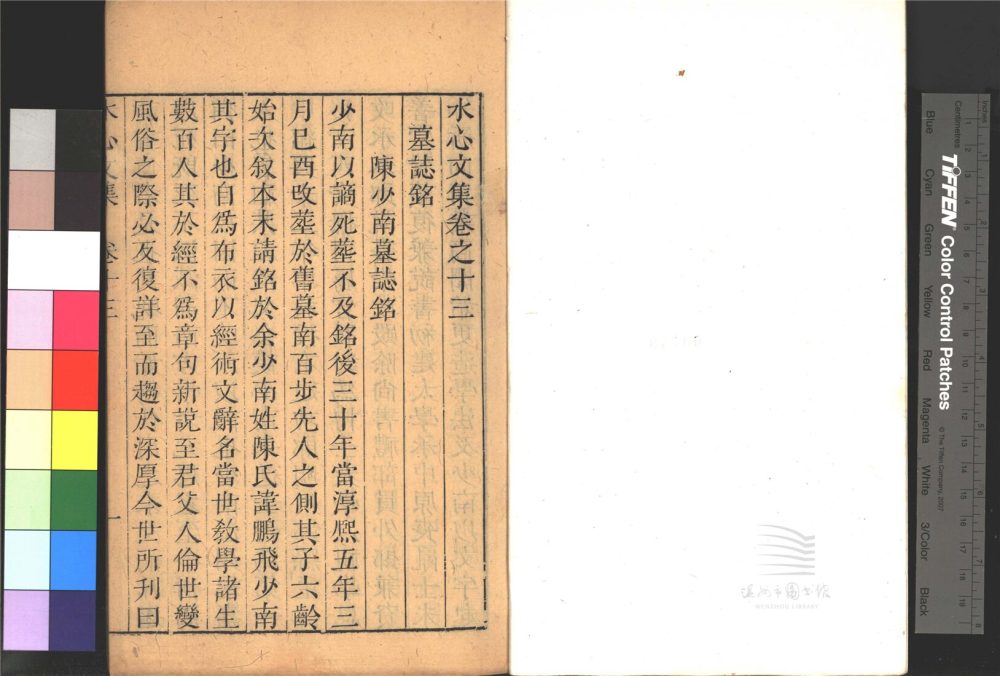 水心文集卷之十三
墓誌銘
陳少南墓誌銘
少南以謫死葬不及銘後三十年當淳熙五年三
月巳酉改葬於舊墓南百步先人之側其子六齡
始次叙本末請銘於余少南姓陳氏諱鵬飛少南
其字也自爲布衣以經術文辭名當世教學諸生
數百人其於經不爲章句新說至君父人倫世變
風俗之際必反復詳至而趨於深厚今世所刋曰
水心文集 卷十三 一
温州市图书馆
WENZHOU LIBRARY
Inches
Centimetres
TIFFEN Color Control Patches
© The Tiffen Company, 2007
Blue Cyan Green Yellow Red Magenta White 3/Color Black